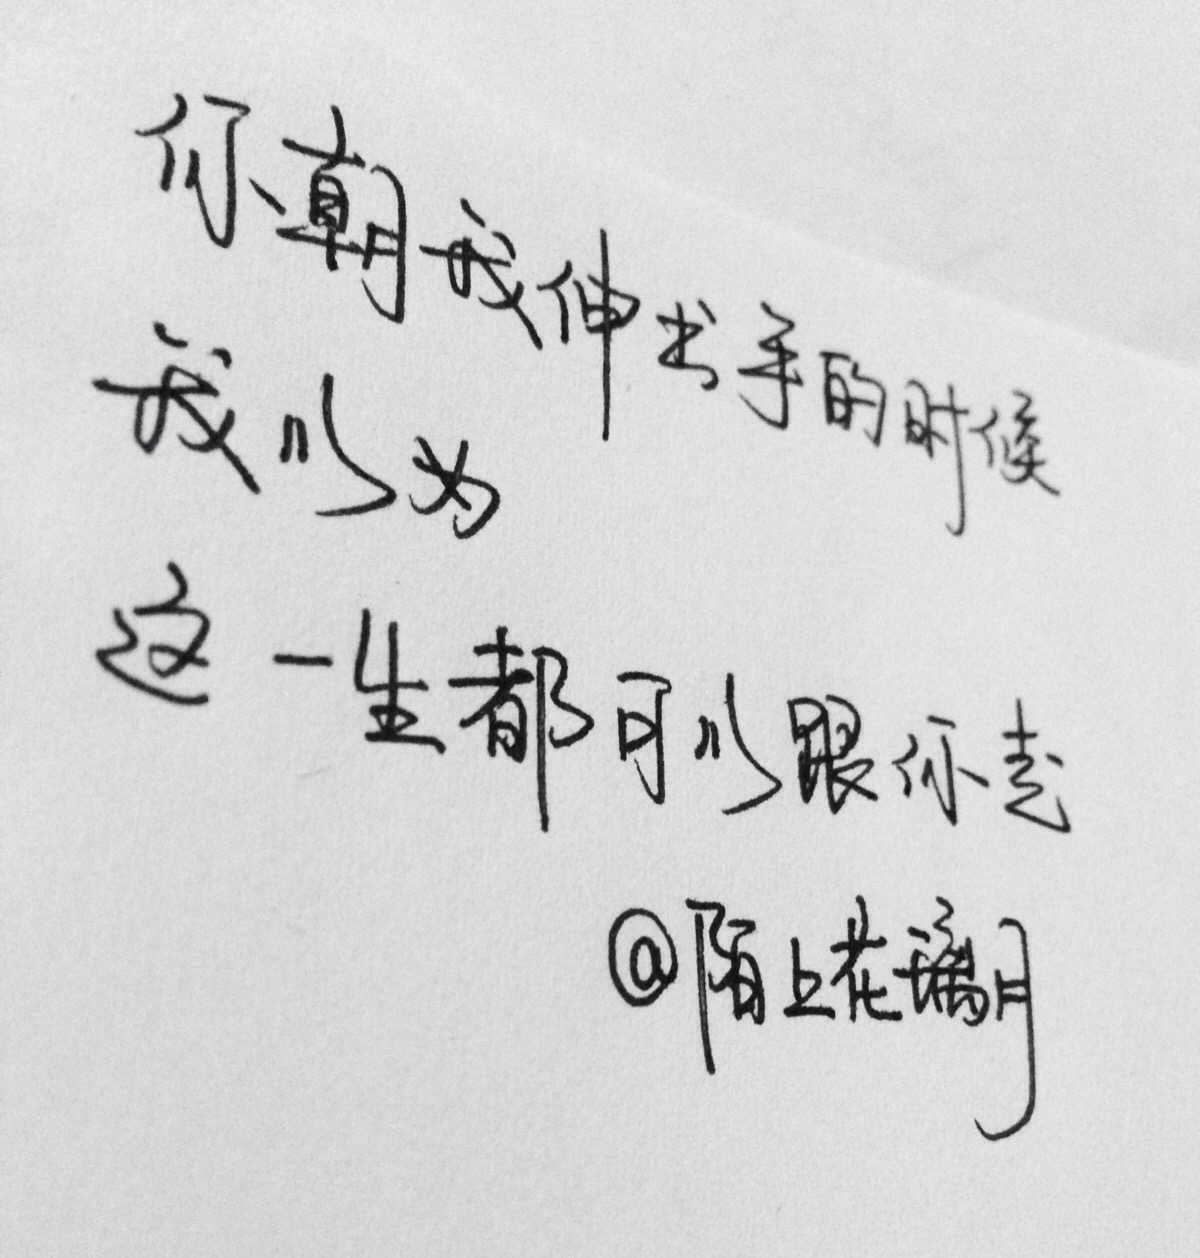 你朝我伸出手的时候
我以为
这一生都可以跟你走
@陌上花璃月